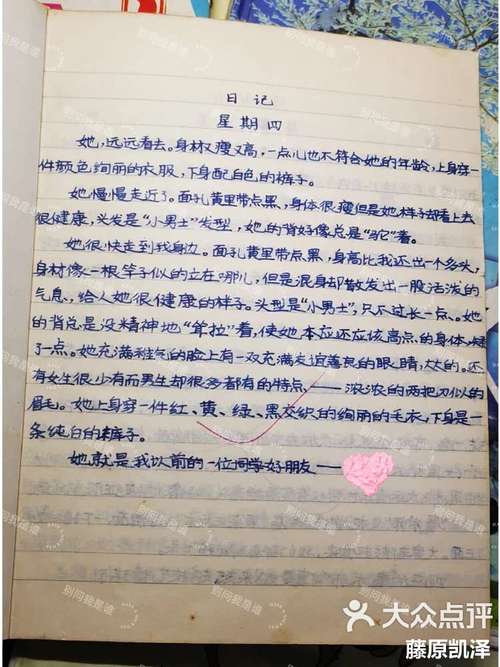 日记
星期四
她,远远看去。身材又瘦又高,一点儿也不符合她的年龄,上身穿
一件颜色绚丽的衣服,下身配白色的裤子。
她慢慢走近了。面孔黄里带点黑,身体很瘦但是她样子却看上去
很健康,头发是“小男士”发型,她的背好像总是“驼”着。
她很快走到我身边。面孔黄里带点黑,身高比我还出一个多头,
身材像一根竿子似的立在哪儿,但是混身却散发出一股活泼的
气息、给人她很健康的样子。头型是“小男士”,只不过长一点、。她
的背总是没精神地“耸拉”着,使她本应还应该高点的身体,矮
了一点。她充满稚气的脸上有一双充满友谊善良的眼睛,大的。还
有女生很少有而男生却很多都有的特点——浓浓的两把刀似的
眉毛。她上身穿一件红、黄、绿、黑交织的绚丽的毛衣,下身是一
条纯白的裤子。
她就是我以前的一位同学好朋友——
别问我是谁
大众点评
藤原凯泽